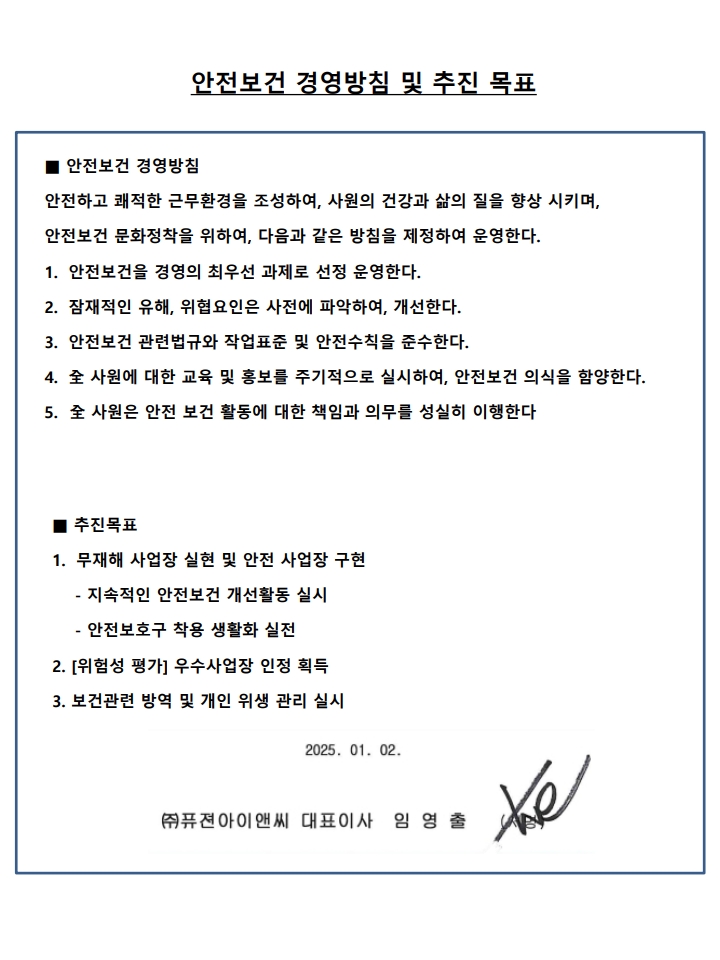 안전보건 경영방침 및 추진 목표
■ 안전보건 경영방침
안전하고 쾌적한 근무환경을 조성하여, 사원의 건강과 삶의 질을 향상 시키며,
안전보건 문화정착을 위하여, 다음과 같은 방침을 제정하여 운영한다.
1. 안전보건을 경영의 최우선 과제로 선정 운영한다.
2. 잠재적인 유해, 위협요인은 사전에 파악하여, 개선한다.
3. 안전보건 관련법규와 작업표준 및 안전수칙을 준수한다.
4. 全 사원에 대한 교육 및 홍보를 주기적으로 실시하여, 안전보건 의식을 함양한다.
5. 全 사원은 안전 보건 활동에 대한 책임과 의무를 성실히 이행한다
■ 추진목표
1. 무재해 사업장 실현 및 안전 사업장 구현
- 지속적인 안전보건 개선활동 실시
- 안전보호구 착용 생활화 실전
2. [위험성 평가] 우수사업장 인정 획득
3. 보건관련 방역 및 개인 위생 관리 실시
2025. 01. 02.
㈜퓨젼아이앤씨 대표이사 임 영 출